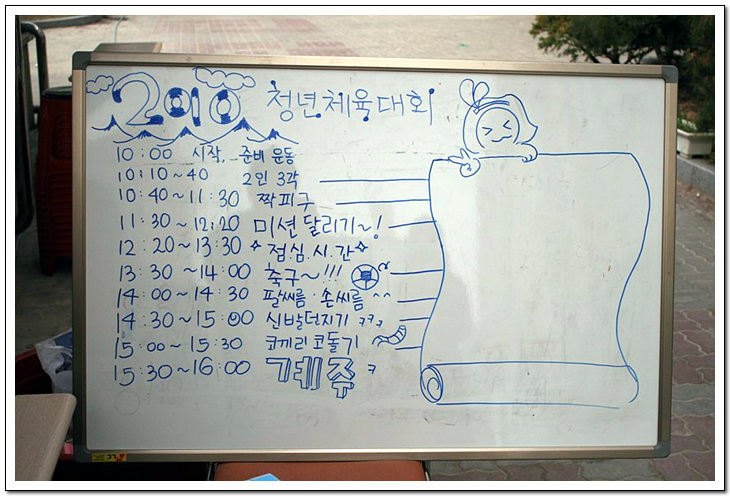 2010 청년체육대회
10:00 시작, 준비 운동
10:10~40 2인 3각
10:40~11:30 짝피구
11:30~12:20 미션달리기~!
12:20~13:30 점.심.시.간
13:30~14:00 축구~!!!
14:00~14:30 팔씨름·손씨름^^
14:30~15:00 신발던지기 ㅋㅋㅋ
15:00~15:30 코끼리코돌기
15:30~16:00 계주 ㅋ